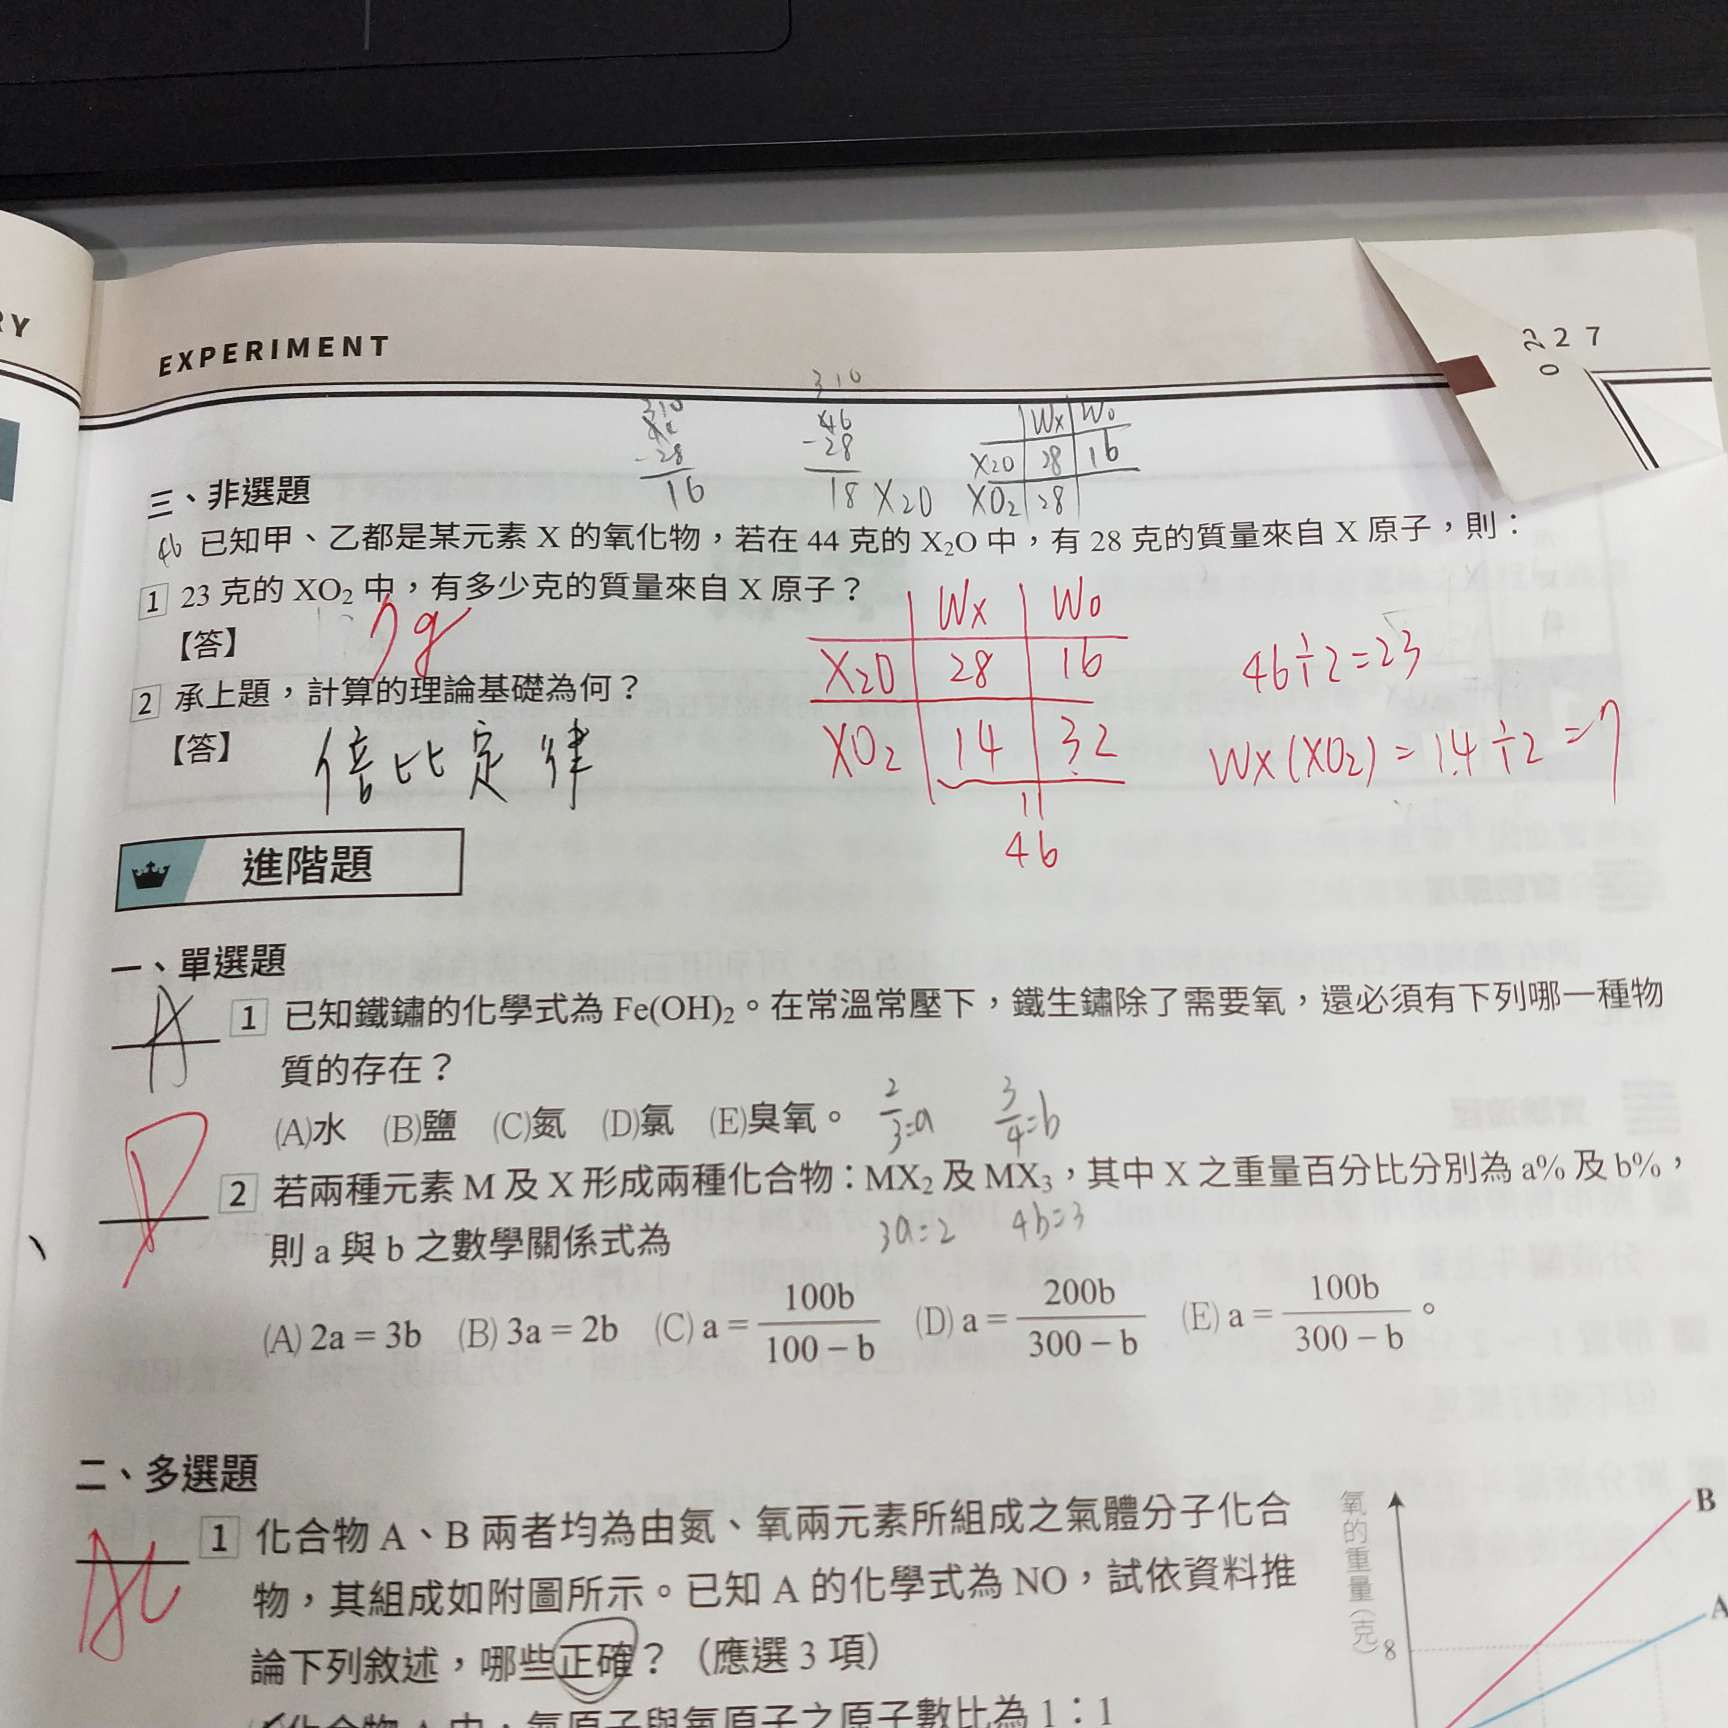 RY
EXPERIMENT
227
022
310
310
46
-28
-28
16
18 X2O
Wx Wo
X2O 28 16
XO2 28
三、非選題
46 已知甲、乙都是某元素 X 的氧化物，若在 44 克的 X₂O 中，有 28 克的質量來自 X 原子，則：
1 23 克的 XO₂ 中，有多少克的質量來自 X 原子？
【答】 7g
2 承上題，計算的理論基礎為何？
【答】 倍比定律
Wx Wo
X2O 28 16
XO2 14 32
46
46÷2=23
Wx(XO2)=14÷2=7
進階題
一、單選題
A 1 已知鐵鏽的化學式為 Fe(OH)₂。在常溫常壓下，鐵生鏽除了需要氧，還必須有下列哪一種物
質的存在？
(A)水 (B)鹽 (C)氮 (D)氯 (E)臭氧。
2/3=a 3/4=b
D 2 若兩種元素 M 及 X 形成兩種化合物：MX₂ 及 MX₃，其中 X 之重量百分比分別為 a% 及 b%，
則 a 與 b 之數學關係式為
3a=2 4b=3
(A) 2a = 3b (B) 3a = 2b (C) a = 100b/(100 − b) (D) a = 200b/(300 − b) (E) a = 100b/(300 − b)。
二、多選題
1 化合物 A、B 兩者均為由氮、氧兩元素所組成之氣體分子化合
物，其組成如附圖所示。已知 A 的化學式為 NO，試依資料推
論下列敘述，哪些正確？（應選 3 項）
化合物 A 中，氮原子與氧原子之原子數比為 1：1
氧的重量(克)
8
B
A